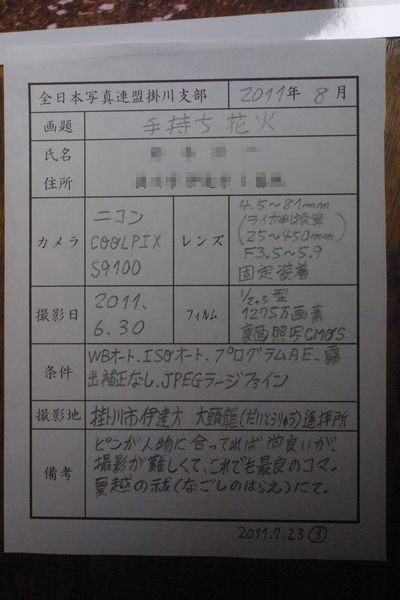 全日本写真連盟掛川支部 2011年 8月
画題 手持ち花火
氏名
住所
カメラ ニコン COOLPIX S9100
レンズ 4.5～81mm
(ライカ判換算
(25～450mm)
F3.5～5.9
固定装着
撮影日 2011. 6.30
フィルム 1/2.3型
1275万画素
裏面照写CMOS
条件 WBオート、ISOオート、プログラムAE、露
出補正なし、JPEGラージファイン
撮影地 掛川市伊達方 大頭龍(だいとうりゅう)遥拝所
備考 ピンが人物に合ってれば尚良いが、
撮影が難しくて、これでも最良のコマ。
夏越の祓(なごしのはらえ)にて。
2011.7.23 ③